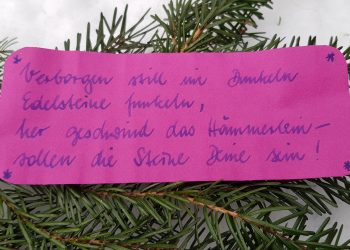 Verborgen still im Dunkeln
Edelsteine funkeln,
her geschwind das Hämmerlein –
sollen die Steine Deine sein!